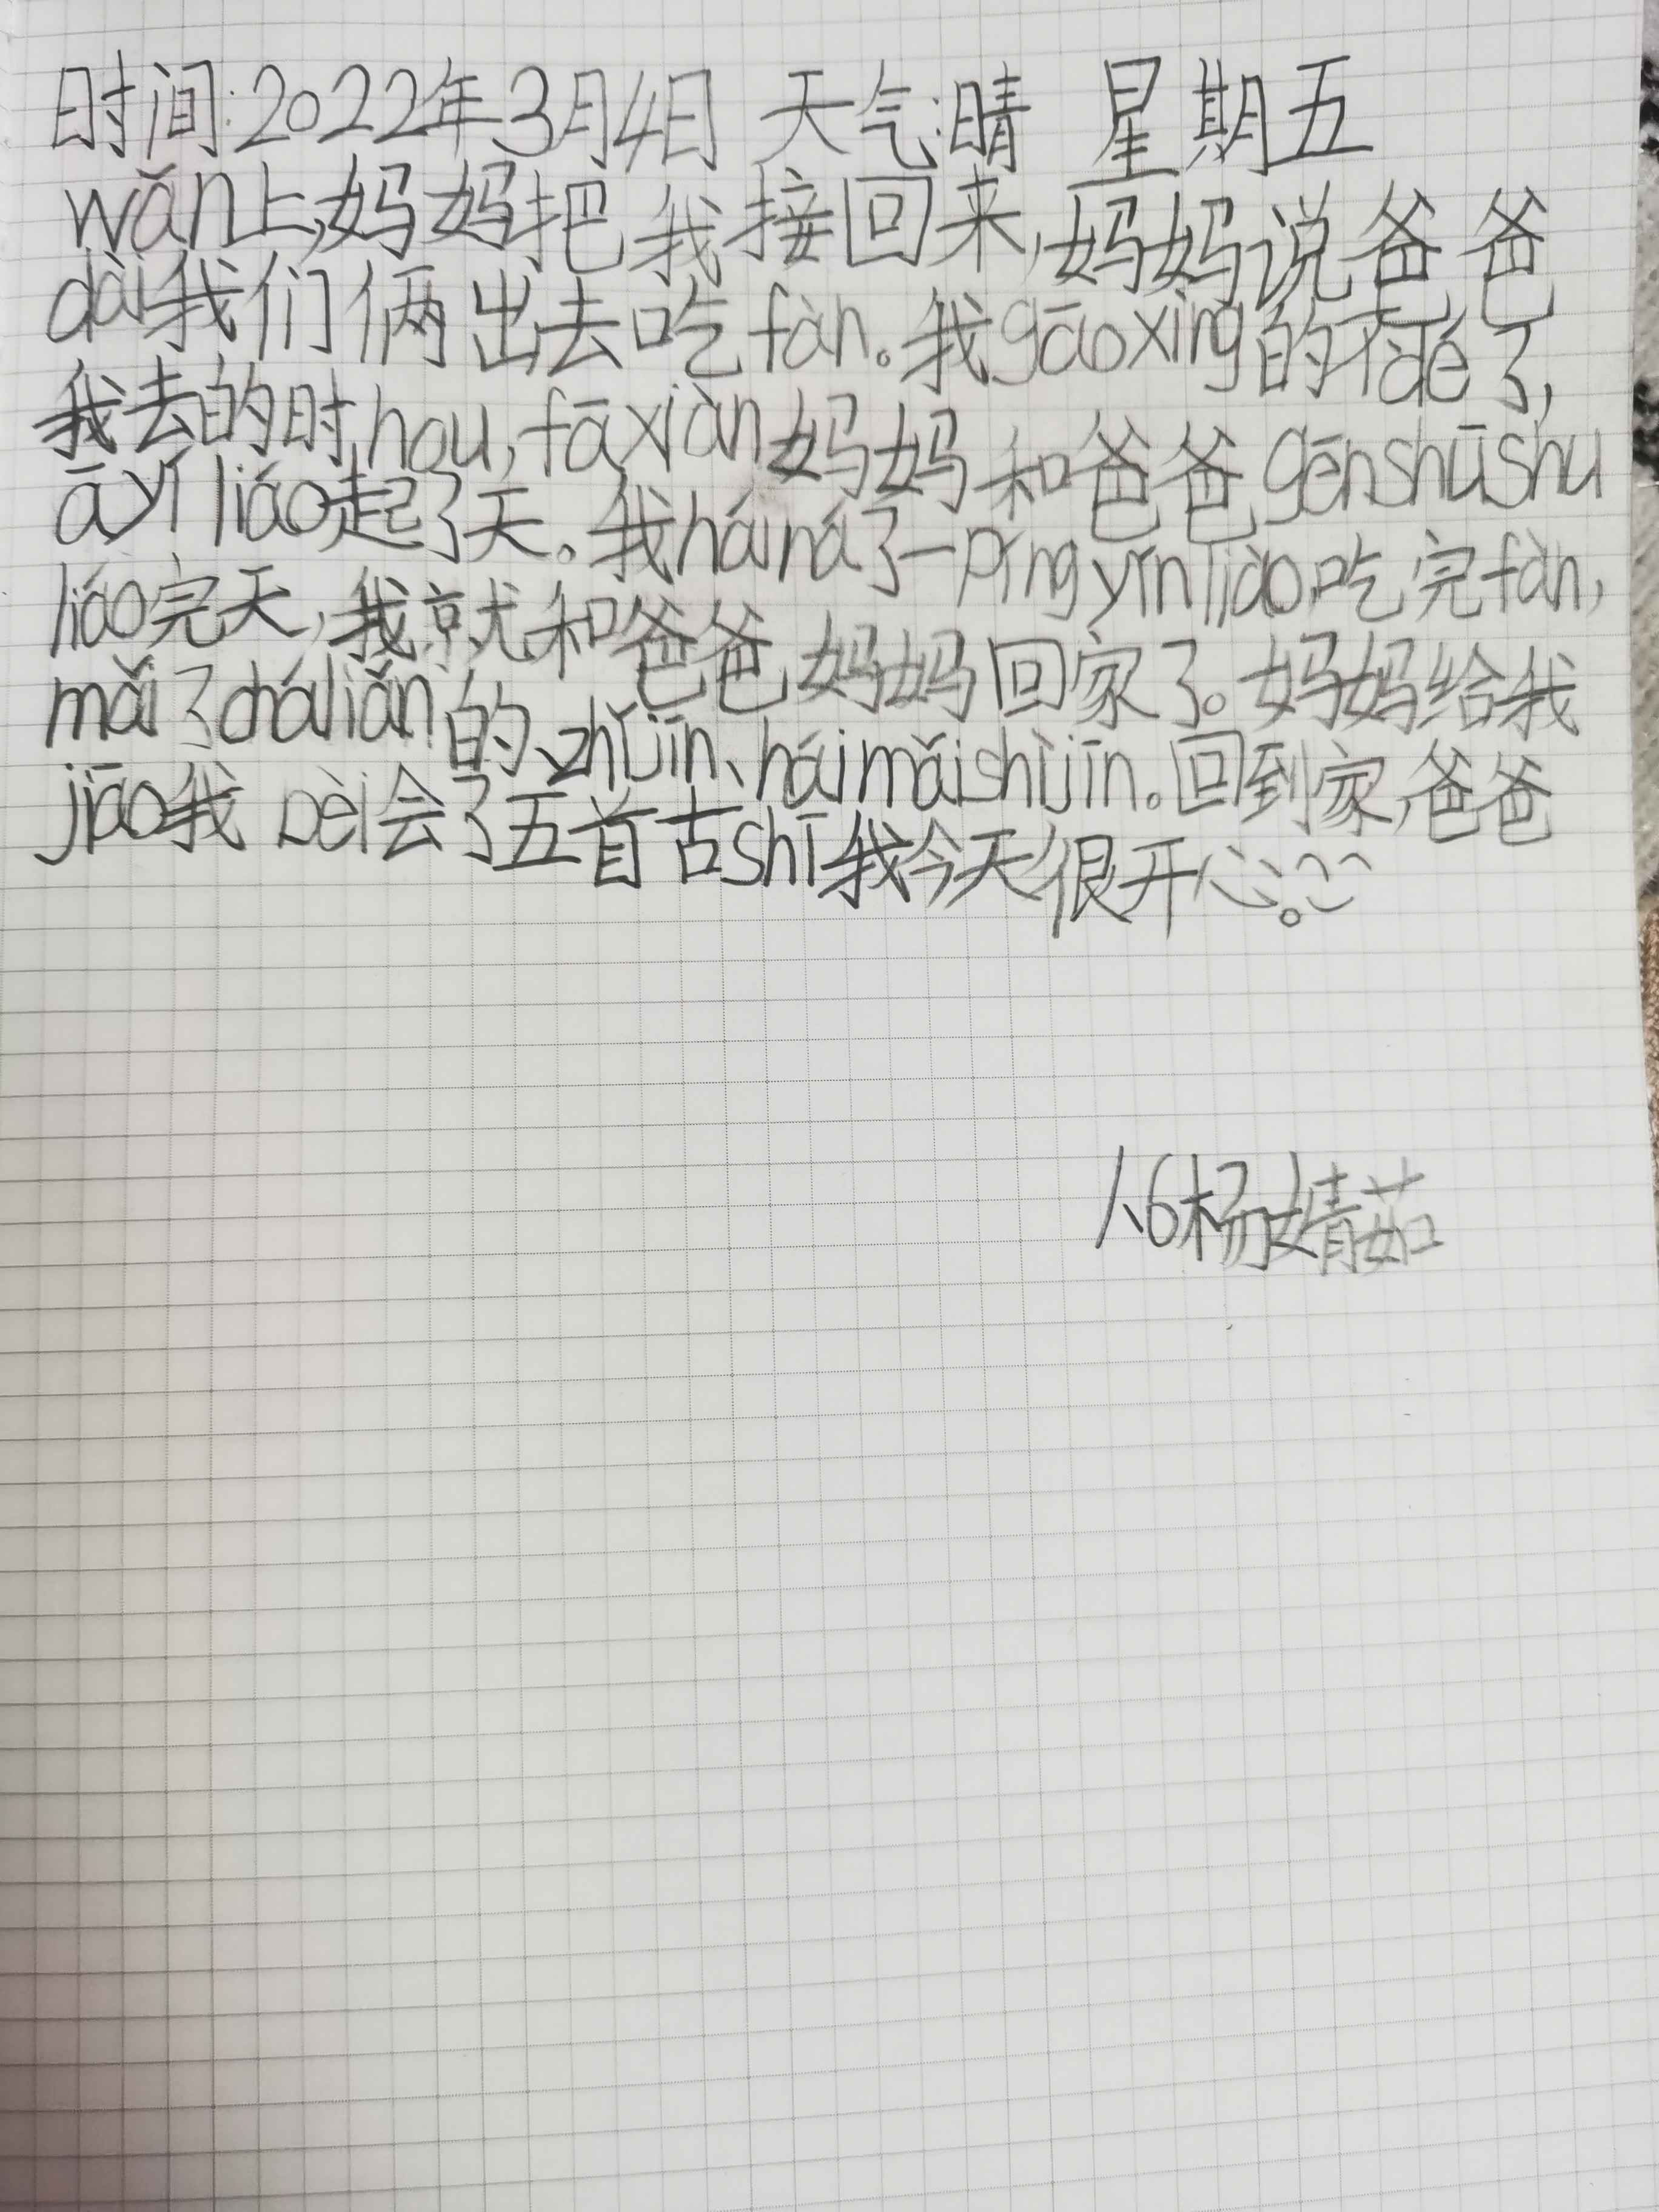 时间:2022年3月4日 天气:晴 星期五
wǎn上,妈妈把我接回来,妈妈说爸爸
dài我们俩出去吃fàn。我gāoxìng的不dé了,
我去的时hou,fāxiàn妈妈和爸爸gēnshūshu
āyí liáo起了天。我háiná了一píngyǐnliào,吃完fàn,
liáo完天,我就和爸爸妈妈回家了。妈妈给我
mǎi了cháliǎn的、zhǐjīn、háimǎishījīn。回到家,爸爸
jiāo我bèi会了五首古shī我今天很开心。
1、6杨婧茹